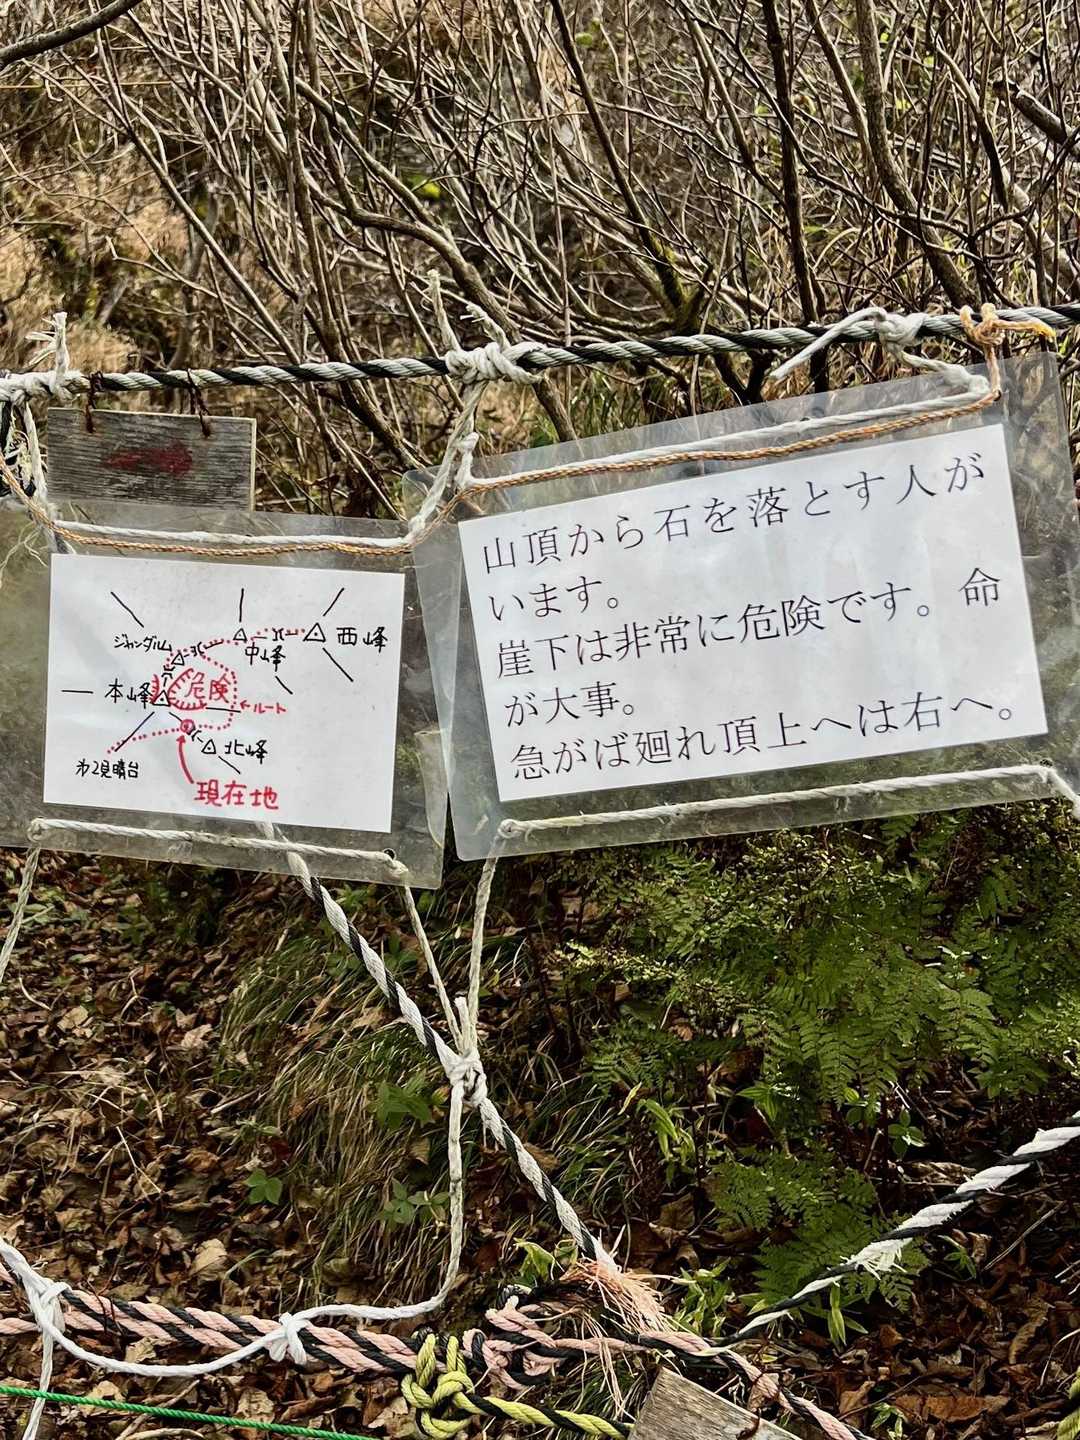 山頂から石を落とす人が
います。
崖下は非常に危険です。命
が大事。
急がば廻れ頂上へは右へ。
ジャンダルム
中峰
西峰
本峰
危険
←ルート
北峰
第2見晴台
現在地